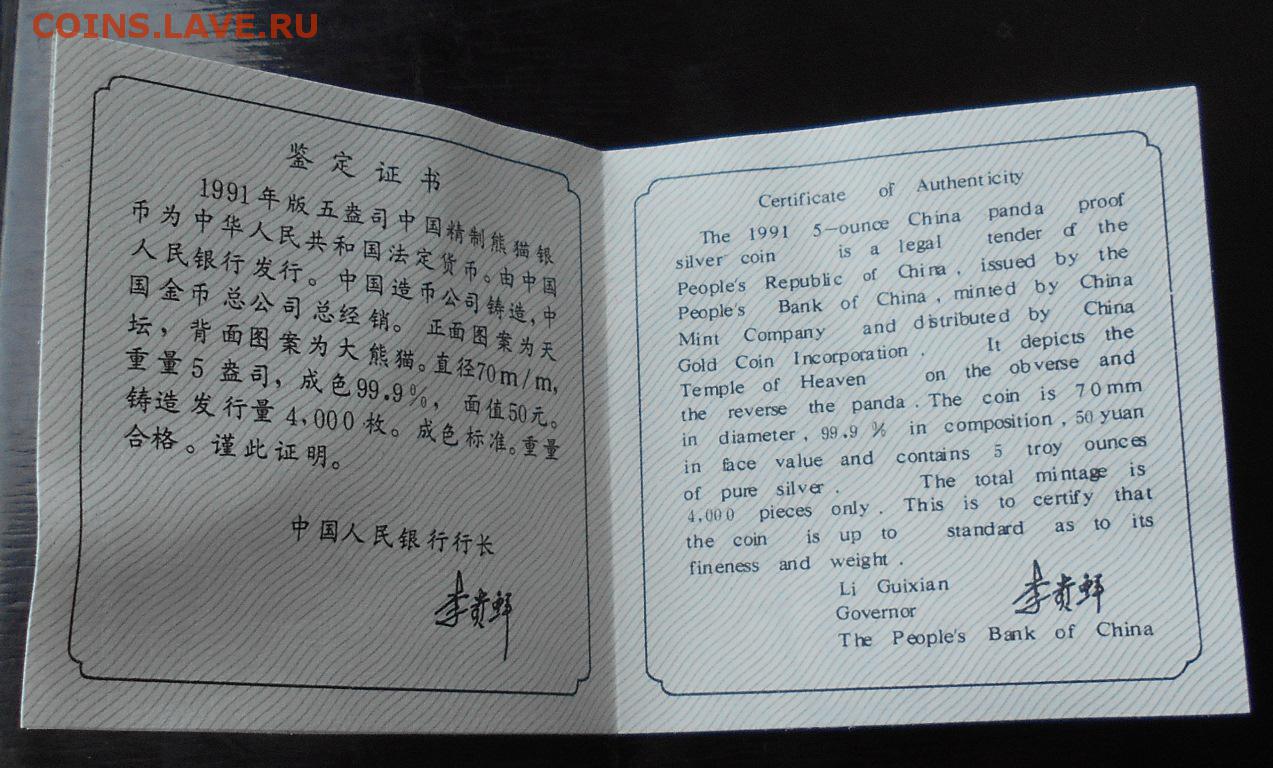 COINS.LAVE.RU
鉴定证书
1991年版五盎司中国精制熊猫银
币为中华人民共和国法定货币。由中国
人民银行发行。中国造币公司铸造,中
国金币总公司总经销。正面图案为天
坛，背面图案为大熊猫。直径70m/m,
重量5盎司，成色99.9%，面值50元。
铸造发行量4,000枚。成色标准。重量
合格。谨此证明。
中国人民银行行长
李贵鲜
Certificate of Authenticity
The 1991 5-ounce China panda proof
silver coin is a legal tender of the
People's Republic of China, issued by the
People's Bank of China, minted by China
Mint Company and distributed by China
Gold Coin Incorporation. It depicts the
Temple of Heaven on the obverse and
the reverse the panda. The coin is 70mm
in diameter, 99.9% in composition, 50 yuan
in face value and contains 5 troy ounces
of pure silver. The total mintage is
4,000 pieces only. This is to certify that
the coin is up to standard as to its
fineness and weight.
Li Guixian
李贵鲜
Governor
The People's Bank of China